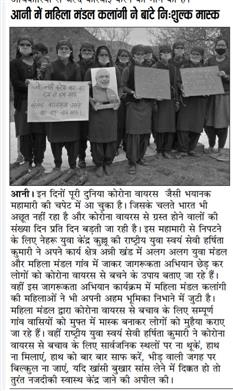 आनी में महिला मंडल कलांगी ने बांटे निःशुल्क मास्क
आनी। इन दिनों पूरी दुनिया कोरोना वायरस जैसी भयानक
महामारी की चपेट में आ चुका है। जिसके चलते भारत भी
अछूत नहीं रहा है और कोरोना वायरस से ग्रस्त होने वालों की
संख्या दिन प्रति दिन बड़ती जा रही है। इस महामारी से निपटने
के लिए नेहरू युवा केंद्र कुल्लू की राष्ट्रीय युवा स्वयं सेवी हर्षिता
कुमारी ने अपने कार्य क्षेत्र अन्नी खंड में अलग अलग युवा मंडल
और महिला मंडल गांव में जाकर जागरूकता अभियान छेड़ कर
लोगों को कोरोना वायरस से बचने के उपाय बताए जा रहे हैं।
वहीं इस जागरूकता अभियान कार्यक्रम में महिला मंडल कलांगी
की महिलाओं ने भी अपनी अहम भूमिका निभाने में जुटी है।
महिला मंडल द्वारा कोरोना वायरस से बचाव के लिए सम्पूर्ण
गांव वासियों को मुफ्त में मास्क बनाकर लोगों को मुहैया कराए
जा रहे हैं। वहीं राष्ट्रीय युवा स्वयं सेवी हर्षिता कुमारी ने कोरोना
वायरस से बचाव के लिए सार्वजनिक स्थलों पर ना थूकें, हाथ
ना मिलाएं, हाथ को बार बार साफ करें, भीड़ वाली जगह पर
बिल्कुल ना जाएं, यदि खांसी बुखार सांस लेने में दिक्कत हो तो
तुरंत नजदीकी स्वास्थ केंद्र जाने की अपील की।